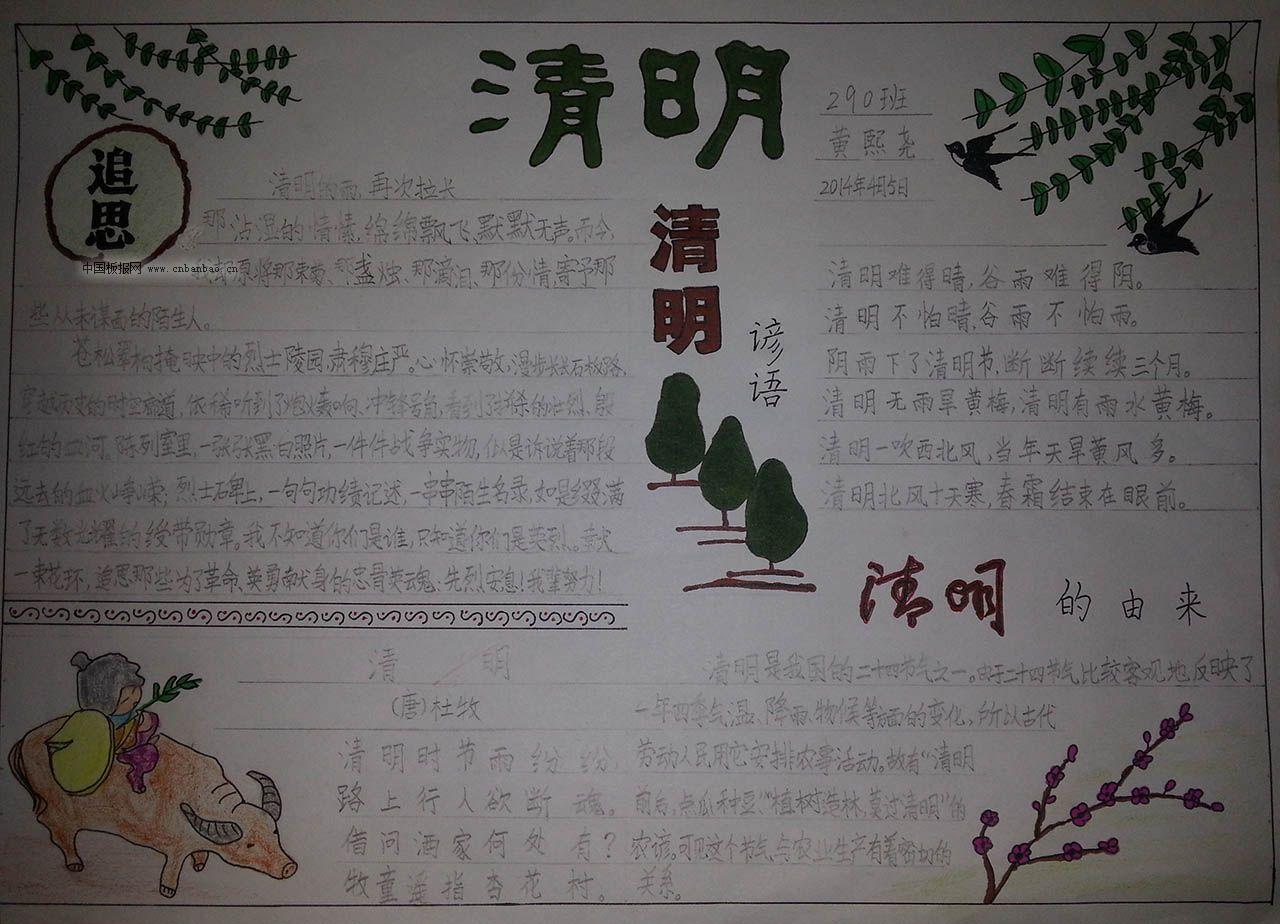 清明
290班
黄熙尧
2014年4月5日
追思
中国板报网 www.cnbanbao.cn
清明的雨,再次拉长
那沾湿的情愫,绵绵飘飞,默默无声。而今,
将那束菊、那盏烛、那滴泪、那份情,寄予那
些从未谋面的陌生人。
苍松翠柏掩映中的烈士陵园,肃穆庄严。心怀崇敬,漫步长长石板路,
穿越历史的时空廊道,依稀听到了炮火轰响、冲锋号角,看到了拼杀的壮烈、殷
红的血河。陈列室里,一张张黑白照片,一件件战争实物,似是诉说着那段
远去的血火峥嵘;烈士石碑上,一句句功绩记述,一串串陌生名录,如是缀满
了无数光耀的绶带勋章。我不知道你们是谁,只知道你们是英烈。献
一束花环,追思那些为了革命、英勇献身的忠骨英魂、先烈安息!我辈努力!
清明
谚语
清明难得晴,谷雨难得阴。
清明不怕晴,谷雨不怕雨。
阴雨下了清明节,断断续续三个月。
清明无雨旱黄梅,清明有雨水黄梅。
清明一吹西北风,当年天旱黄风多。
清明北风十天寒,春霜结束在眼前。
清明的由来
清明是我国的二十四节气之一。由于二十四节气比较客观地反映了
一年四季气温、降雨、物候等方面的变化,所以古代
劳动人民用它安排农事活动。故有“清明
前后,点瓜种豆”“植树造林,莫过清明”的
农谚。可见这个节气与农业生产有着密切的
关系。
清明
(唐)杜牧
清明时节雨纷纷,
路上行人欲断魂。
借问酒家何处有?
牧童遥指杏花村。